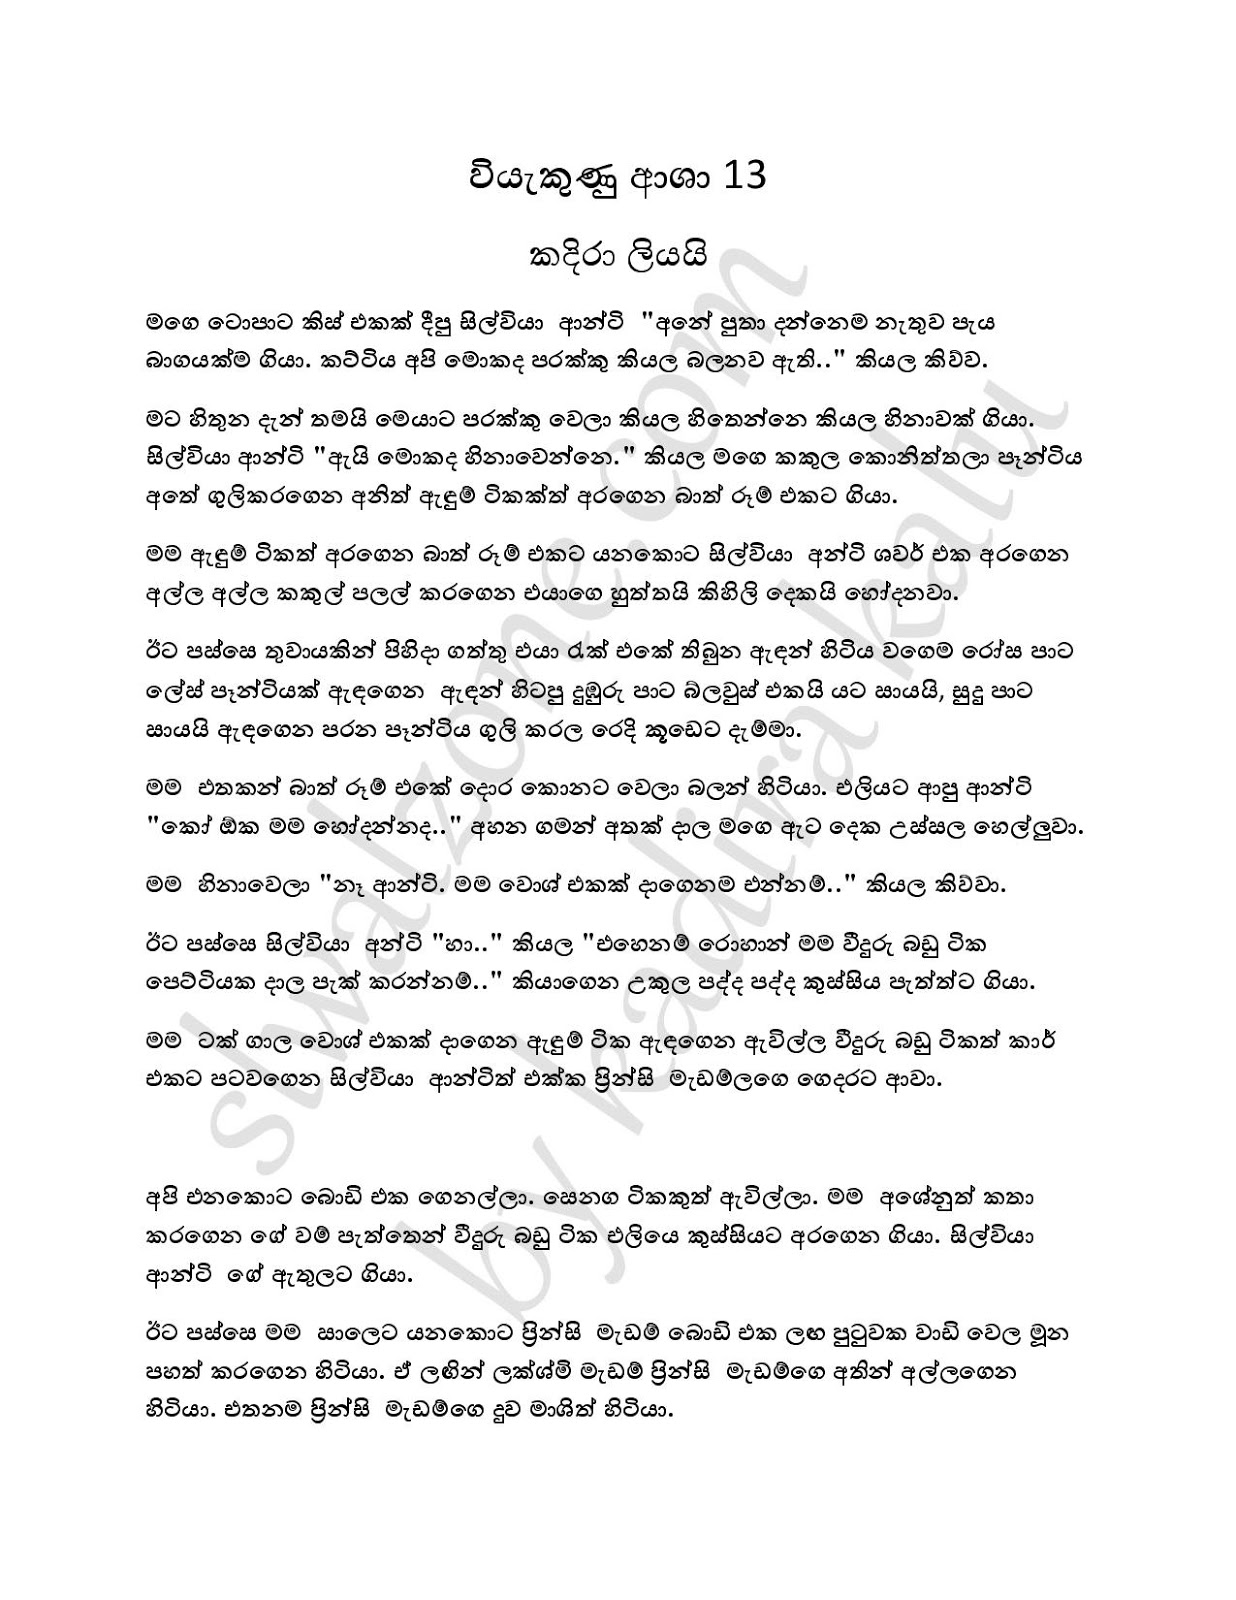 වියැකුණු ආශා 13
කදිරා ලියයි
මගෙ ටොපාට කිස් එකක් දීපු සිල්වියා ආන්ටි "අනේ පුතා දන්නෙම නැතුව පැය
බාගයක්ම ගියා. කට්ටිය අපි මොකද පරක්කු කියල බලනව ඇති.." කියල කිව්ව.
මට හිතුන දැන් තමයි මෙයාට පරක්කු වෙලා කියල හිතෙන්නෙ කියල හිනාවක් ගියා.
සිල්වියා ආන්ටි "ඇයි මොකද හිනාවෙන්නෙ." කියල මගෙ කකුල කොනිත්තලා පෑන්ටිය
අතේ ගුලිකරගෙන අනිත් ඇඳුම් ටිකක්ත් අරගෙන බාත් රූම් එකට ගියා.
මම ඇඳුම් ටිකත් අරගෙන බාත් රූම් එකට යනකොට සිල්වියා අන්ටි ශවර් එක අරගෙන
අල්ල අල්ල කකුල් පලල් කරගෙන එයාගෙ හුත්තයි කිහිලි දෙකයි හෝදනවා.
ඊට පස්සෙ තුවායකින් පිහිදා ගත්තු එයා රැක් එකේ තිබුන ඇඳන් හිටිය වගෙම රෝස පාට
ලේස් පෑන්ටියක් ඇඳගෙන ඇඳන් හිටපු දුඹුරු පාට බ්ලවුස් එකයි යට සායයි, සුදු පාට
සායයි ඇඳගෙන පරන පෑන්ටිය ගුලි කරල රෙදි කූඩෙට දැම්මා.
මම එතකන් බාත් රූම් එකේ දොර කොනට වෙලා බලන් හිටියා. එලියට ආපු ආන්ටි
"කෝ ඕක මම හෝදන්නද.." අහන ගමන් අතක් දාල මගෙ ඇට දෙක උස්සල හෙල්ලුවා.
මම හිනාවෙලා "නෑ ආන්ටි. මම වොශ් එකක් දාගෙනම එන්නම්.." කියල කිව්වා.
ඊට පස්සෙ සිල්වියා අන්ටි "හා.." කියල "එහෙනම් රොහාන් මම වීදුරු බඩු ටික
පෙට්ටියක දාල පැක් කරන්නම්.." කියාගෙන උකුල පද්ද පද්ද කුස්සිය පැත්ත්ට ගියා.
මම ටක් ගාල වොශ් එකක් දාගෙන ඇඳුම් ටික ඇඳගෙන ඇවිල්ල වීදුරු බඩු ටිකත් කාර්
එකට පටවගෙන සිල්වියා ආන්ටිත් එක්ක ප්‍රින්සි මැඩම්ලගෙ ගෙදරට ආවා.
අපි එනකොට බොඩි එක ගෙනල්ලා. සෙනග ටිකකුත් ඇවිල්ලා. මම අශේනුත් කතා
කරගෙන ගේ වම් පැත්තෙන් වීදුරු බඩු ටික එලියෙ කුස්සියට අරගෙන ගියා. සිල්වියා
ආන්ටි ගේ ඇතුලට ගියා.
ඊට පස්සෙ මම සාලෙට යනකොට ප්‍රින්සි මැඩම් බොඩි එක ලඟ පුටුවක වාඩි වෙල මූන
පහත් කරගෙන හිටියා. ඒ ලඟින් ලක්ශ්මි මැඩම් ප්‍රින්සි මැඩම්ගෙ අතින් අල්ලගෙන
හිටියා. එතනම ප්‍රින්සි මැඩම්ගෙ දුව මාශිත් හිටියා.
slwalzone.com
by kadira kalu